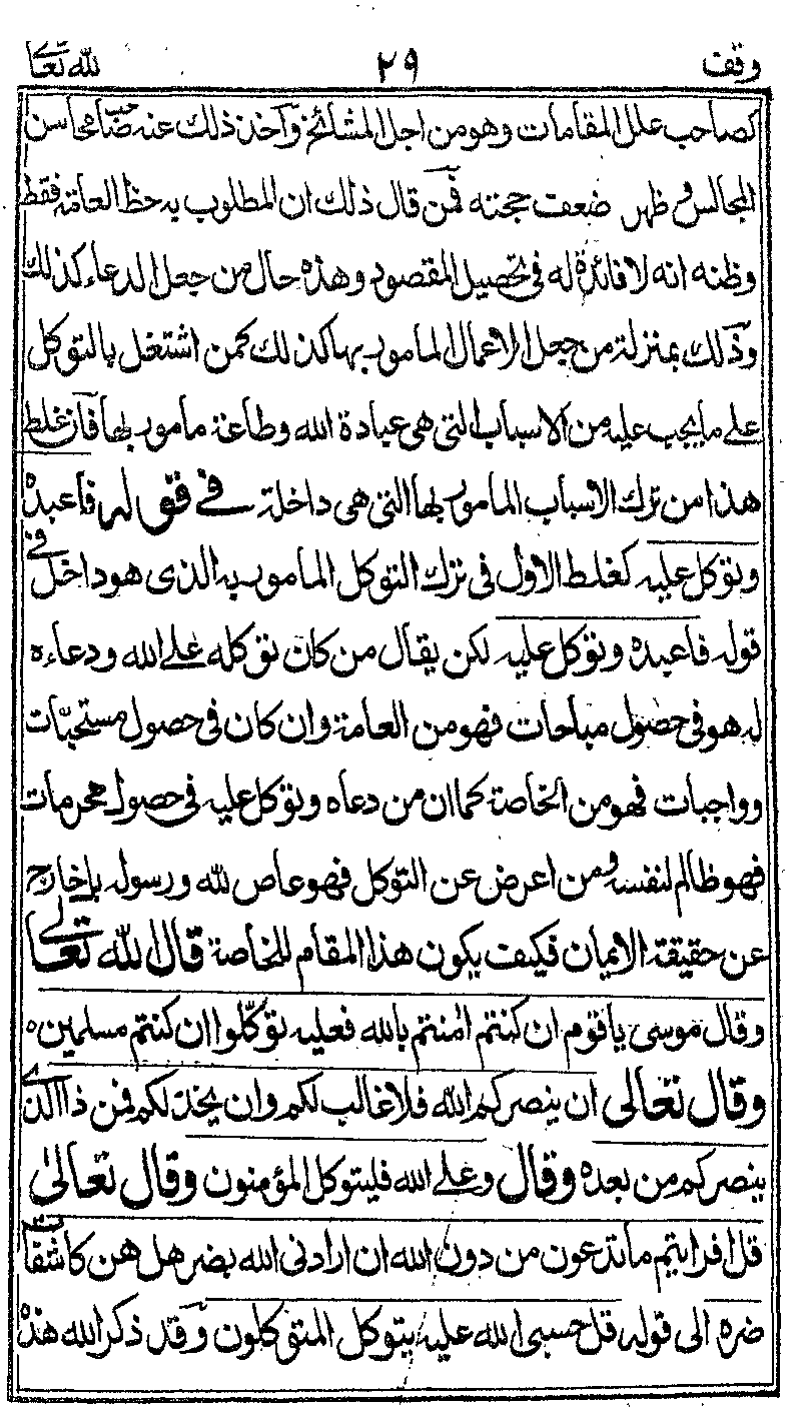 وقف ٢٩ لله تعالے
كصاحب علل المقامات وهو من اجل المشائخ وآخذ ذلك عنه صاحب محاسن
المجالس وظهر ضعف حجته فمن قال ذلك ان المطلوب به حظ العامة فقط
وظنه انه لا فائدة له فى تحصيل المقصود وهذه حال من جعل الدعاء كذلك
وذلك بمنزلة من جعل الاعمال المامور بها كذلك كمن اشتغل بالتوكل
علے ما يجب عليه من الاسباب التى هى عبادة الله وطاعة مامور بها فان غلط
هذا من ترك الاسباب المامور بها التى هى داخلة فے قوله فاعبده
وتوكل عليه كغلط الاول فى ترك التوكل المامور به الذى هو داخل فے
قوله فاعبده وتوكل عليه لكن يقال من كان توكله علے الله ودعاءه
له هو فى حصول مباحات فهو من العامة وان كان فى حصول مستحبّات
وواجبات فهو من الخاصة كما ان من دعاه وتوكل عليه فى حصول محرمات
فهو ظالم لنفسه ومن اعرض عن التوكل فهو عاص لله ورسوله بل خارج
عن حقيقة الايمان فكيف يكون هذا المقام للخاصة قال لله تعالے
وقال موسى يا قوم ان كنتم امنتم بالله فعليه توكّلوا ان كنتم مسلمين ه
وقال تعالى ان ينصركم الله فلا غالب لكم وان يخذلكم فمن ذا الذے
ينصركم من بعده وقال وعلے الله فليتوكل المؤمنون وقال تعالىٰ
قل افرايتم ما تدعون من دون الله ان ارادنى الله بضر هل هن كاشفات
ضره الى قوله قل حسبى الله عليه يتوكل المتوكلون وقد ذكر الله هذه